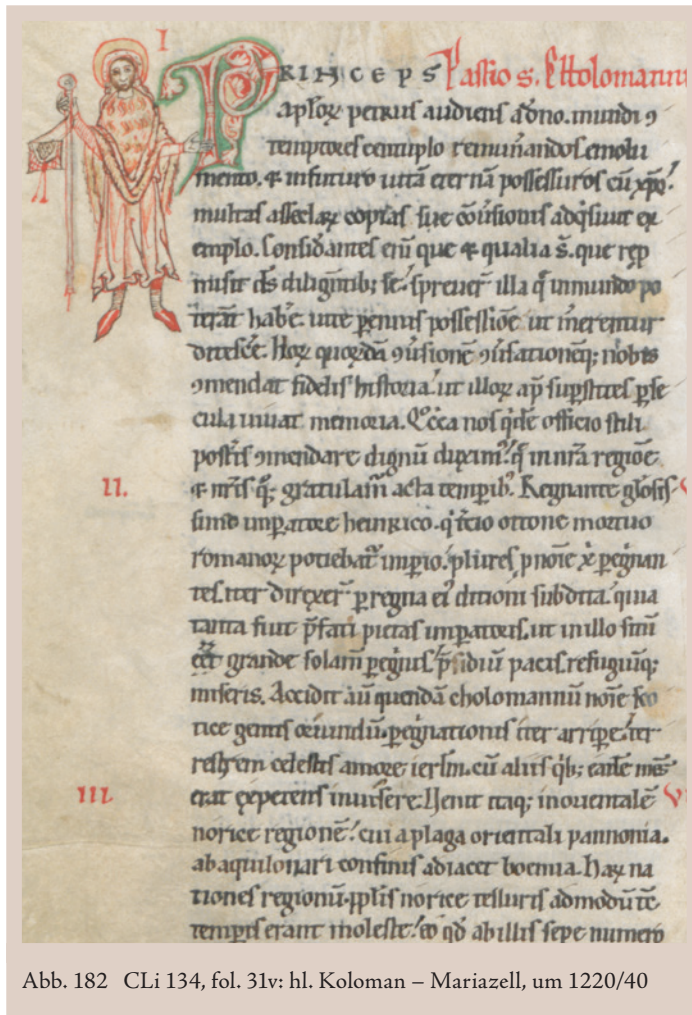 I
PRINCEPS Passio s. Cholomanni
aploꝝ petrus audiens a dno. mundi ꝯ
temptores centuplo remun̄andos emolu
mento. & in futuro uitā eternā possessuros cū xp̄o.
multas asseclaꝝ copias sue cōuisionis adqͥsiuit ex
emplo. Considantes eni que & qualia s̄. que rep
misit ds̄ diligentib; se. spreuer̄ illa q̄ in mundo po
terāt hab̄e. uite ꝑennis possessiōe ut merentur
ditesc̄e. Hoꝝ quoꝝdā ꝯuͥsionē ꝯuͥsationēq; nobis
ꝯmendat fidelis historia. ut illoꝝ ap̄ suꝑstites ꝑ se
cula uiuat memoria. nos qͥde officio stili
post̄is ꝯmendare dignū duxim᷒. q̄ in nr̄a regiōe
II.
& nr̄is q; gratulam̄ acta temporib᷒. Regnante gl̄osis
simo impatore heinrico. qͥ t̄cio ottone mortuo
romanoꝝ potiebat᷑ impio. plures ꝓ noīe x̄ ꝑegͥnan
tes. iter direxer̄ ꝑ regna ei᷒ ditioni subdita. quia
tanta fuit p̄fati pietas impatoris. ut in illo sum̄
eēt grande solam̄ ꝑegͥnis. p̄sidiū pacis. refugiūq;
miseris. Accidit aū quendā cholomannū noīe sco
tice gentis oriundū. ꝑegͥnationis iter arriꝑe. ter
restrem celestis amore ierl̄m. cū aliis qͥb; eadē mēs
III
erat expetens inuisere. Uenit itaq; in orientalē VI
norice regionē. cui a plaga orientali pannonia.
ab aquilonari confinis adiacet boemia. Haꝝ na
tiones regionū. pp̄lis norice telluris admodū eē
tempis erant moleste. eo qd̄ ab illis sepe numero
Abb. 182 CLi 134, fol. 31v: hl. Koloman – Mariazell, um 1220/40